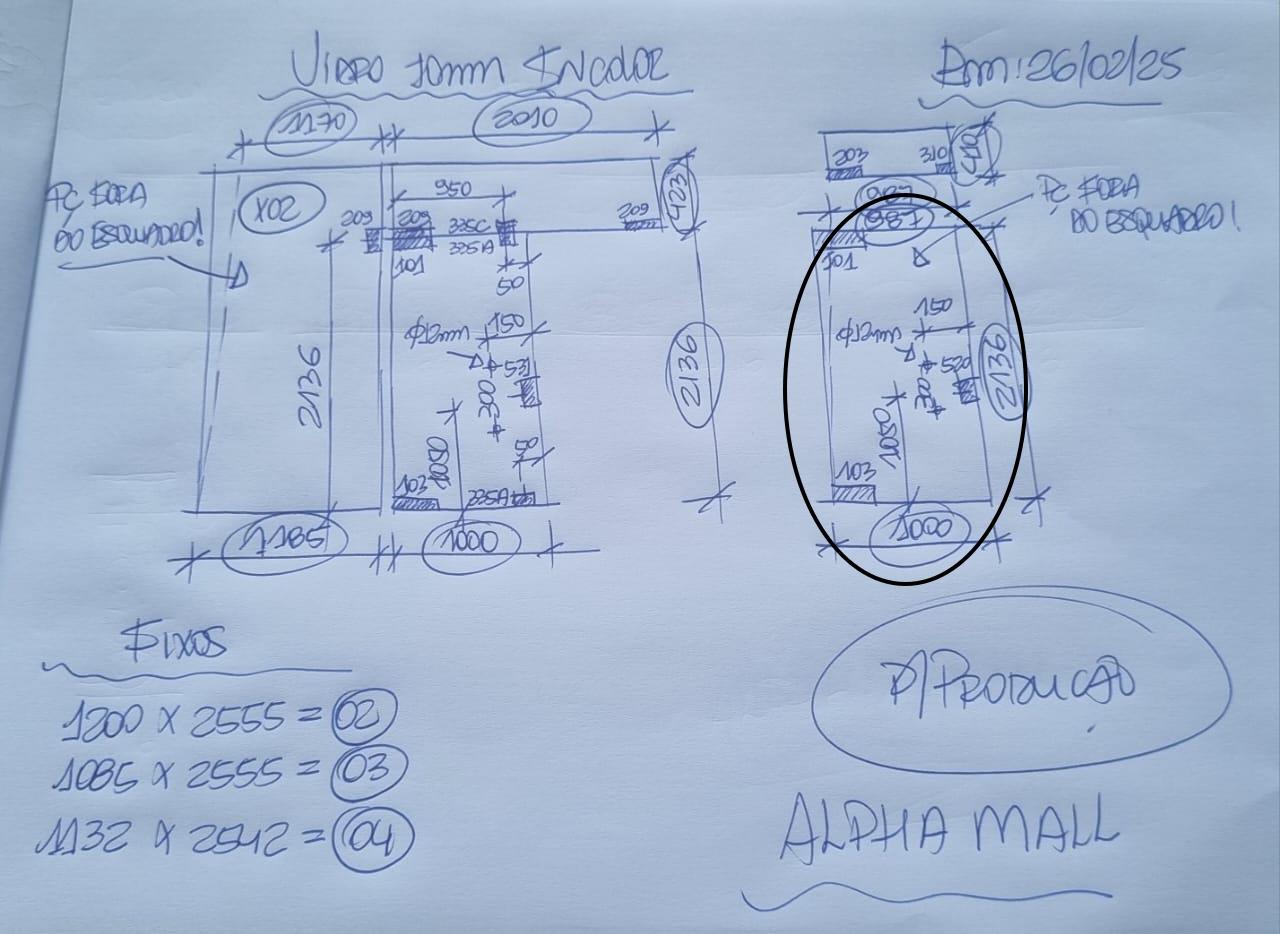 VIDRO 10mm INCOLOR
Em: 26/02/25
1170
2010
PÇ FORA
DO ESQUADRO!
X02
950
423
209
209
335C
335A
209
101
50
150
531
300
2136
1050
50
103
335A
2136
1185
1000
203
310
410
PÇ FORA
DO ESQUADRO!
987
101
150
520
300
2136
1050
103
1000
FIXOS
1200 X 2555 = 02
1085 X 2555 = 03
1132 X 2542 = 04
P/ PRODUCAO
ALPHA MALL